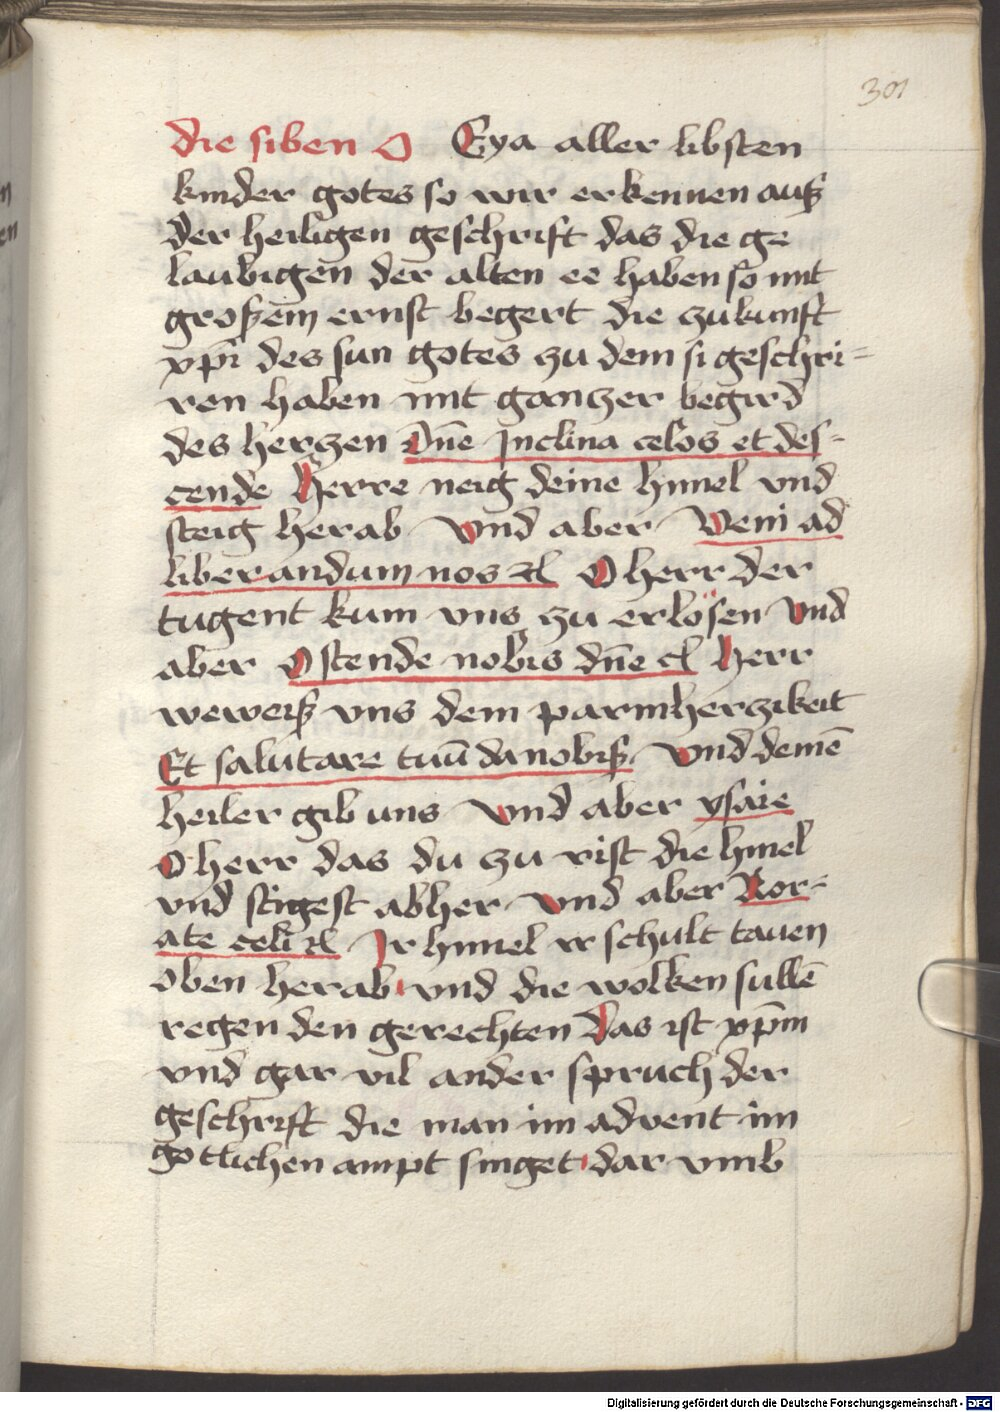 301
die siben O Eya aller libsten
kinder gotes so wir erkennen auß
der heiligen geschrift das die ge
laubigen der alten ee haben so mit
großem ernst begert die zukunft
xp̄i des sun gotes zu dem si geschri=
ren haben mit ganczer begird
des herczen Dn̄e Inclina celos et des=
cende Herre neig deine himel vnd
steig herab Vnd aber Veni ad
liberandum nos ꝛc̄ O herr der
tugent kum vns zu erlösen Vnd
aber Ostende nobis dn̄e ꝛc̄ Herr
weweiß vns dein parmherczikeit
Et salutare tuū da nobiß Vnd deinē
heiler gib uns Vnd aber ysaie
O herr das du zu rist die himel
vnd stigest abher Vnd aber Ror=
ate celi ꝛc̄ Ir himel ir schult tauen
oben herab vnd die wolken sullē
regen den gerechten Das ist xp̄m
vnd gar vil ander spruch der
geschrift die man im advent im
gotlichen ampt singet dar vmb
Digitalisierung gefördert durch die Deutsche Forschungsgemeinschaft - DFG